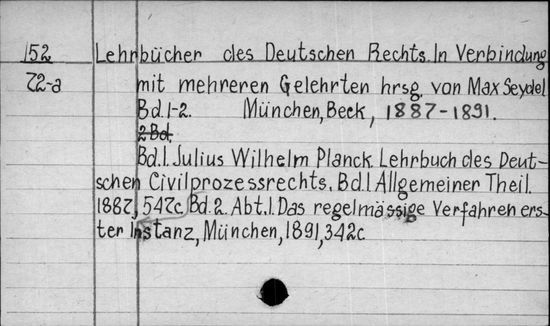 152 Lehrbücher des Deutschen Rechts. In Verbindung
72-a mit mehreren Gelehrten hrsg. von Max Seydel
Bd. 1-2. München, Beck, 1887-1891.
2 Bd.
Bd. 1. Julius Wilhelm Planck Lehrbuch des Deut-
schen Civilprozessrechts. Bd. 1 Allgemeiner Theil.
1887, 547c. Bd. 2. Abt. 1. Das regelmässige Verfahren ers-
ter Instanz, München, 1891, 342c